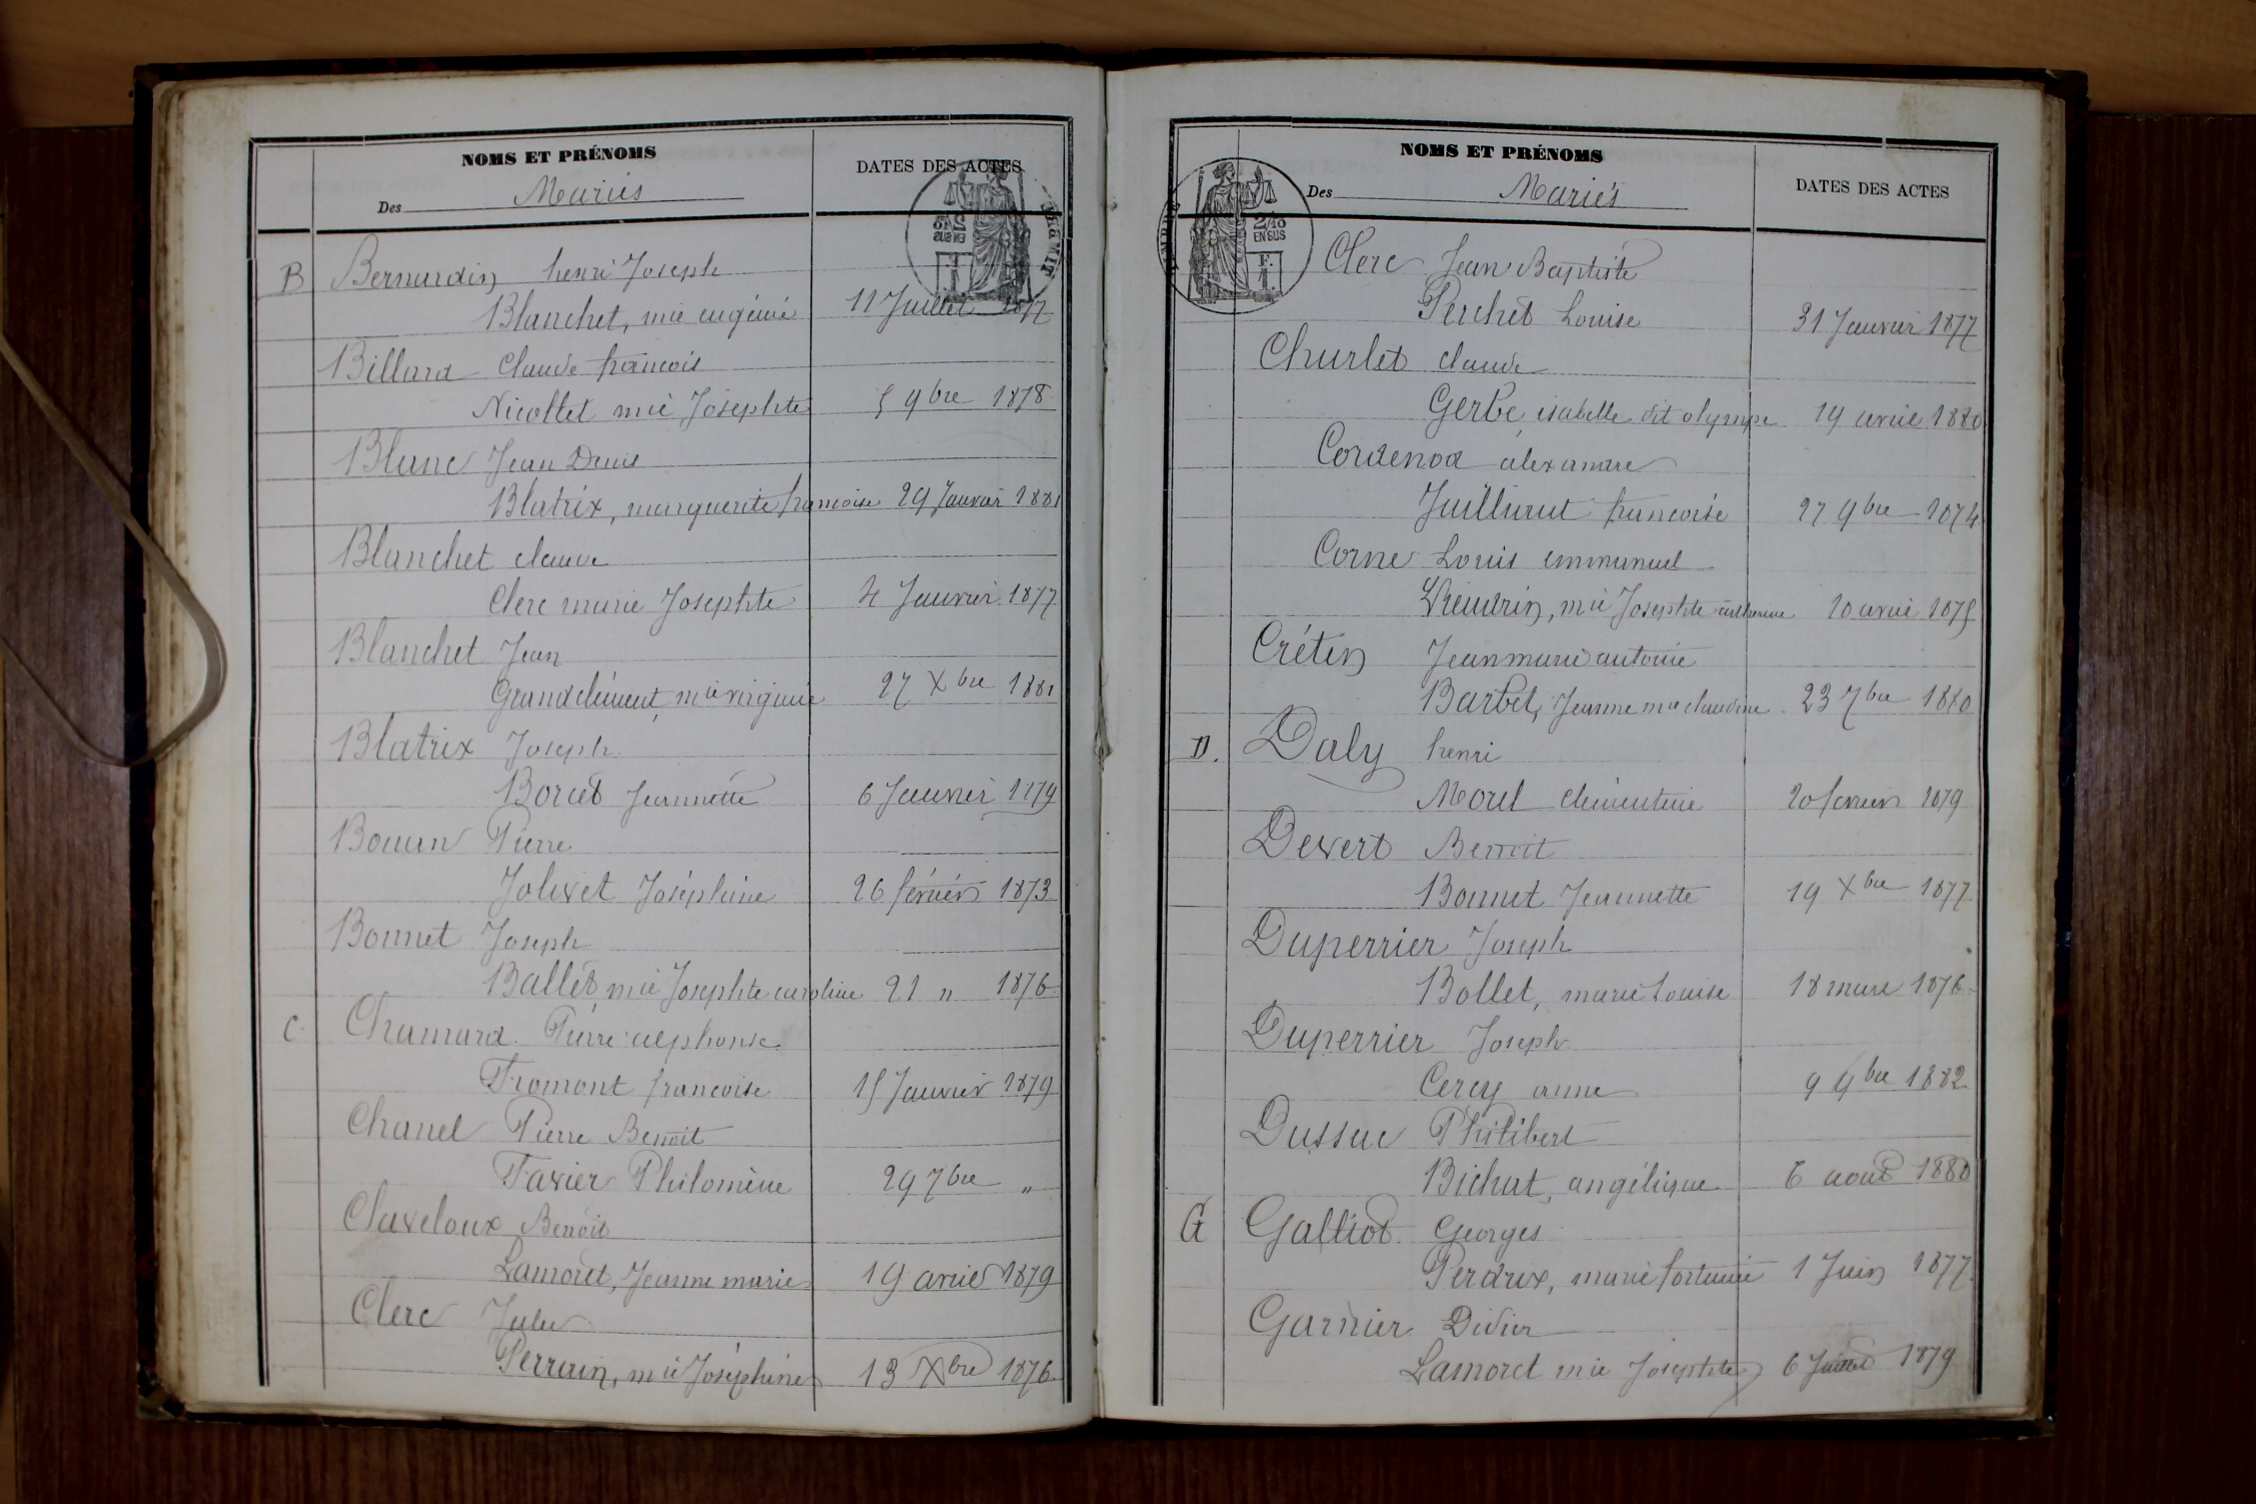 NOMS ET PRÉNOMS
DATES DES ACTES
Des Mariés
2/10
EN SUS
B Bernardin henri Joseph
Blanchet, mie eugénie 11 Juillet 1877
Billard Claude françois
Nicollet mie Josephte 5 9bre 1878
Blanc Jean Denis
Blatrix, marguerite françoise 29 Janvier 1881
Blanchet claude
Clerc marie Josephte 4 Janvier 1877
Blanchet Jean
Grandclément mie virginie 27 Xbre 1881
Blatrix Joseph
Borcet Jeannette 6 Janvier 1879
Bouan Pierre
Jolivet Joséphine 26 février 1873
Bonnet Joseph
Ballet, mie Josephte caroline 21 " 1876
C. Chamard Pierre alphonse
Fromont francoise 15 Janvier 1879
Chanel Pierre Benoit
Favier Philomène 29 7bre "
Claveloux Benoit
Lamoret, Jeanne marie 19 avril 1879
Clerc Jules
Perrain, mie Joséphine 13 Xbre 1876
NOMS ET PRÉNOMS
DATES DES ACTES
Des Mariés
2/10
EN SUS
Clerc Jean Baptiste
Perchet Louise 31 Janvier 1877
Churlet claude
Gerbe, isabelle dit olympe 19 avril 1880
Cordenod alexandre
Juillard francoise 27 9bre 1874
Corne Louis emmanuel
mie Josephte catherine 10 avril 1875
Crétin Jean marie antoine
Barbet, Jeanne mie claudine 23 7bre 1880
D. Daly henri
Morel clémentine 20 fevrier 1879
Devert Benoit
Bonnet Jeannette 19 Xbre 1877
Duperrier Joseph
Bollet, marie Louise 18 mars 1876
Duperrier Joseph
Cercy anne 9 9bre 1882
Dussuc Philibert
Bichat, angélique 6 aout 1880
G Galliot Georges
Perdrix, marie fortunée 1 Juin 1877
Garnier Didier
Lamoret mie Josephte 6 Juillet 1879